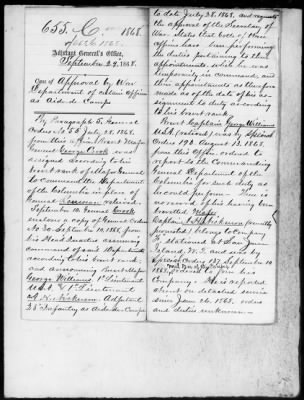 655. C. 1868.
Adjutant General's Office,
September 29, 1868.
Case of Approval by War
Department of certain Officers
as Aide-de-Camps
By Paragraph 5, General
Orders No 55 July 28. 1868.
from this office Brevet Major
General George Crook was
assigned according to his
brevet rank of Major General
to Command the Department
of the Columbia in place of
General Rousseau relieved.
September 10. General Crook
encloses a copy of General Orders
No 30. September 10, 1868, from
his Head Quarters assuming
command of said Department
according to his brevet rank.
and announcing Brevet Major
George Williams 1st Lieutenant
U.S.A. & 1st Lieutenant
A. H. Nickerson Adjutant
23d Infantry as Aide-de-Camps
to date July 28. 1868. and requests
the approval of the Secretary of
War. States that both of these
officers have been performing
the duties pertaining to their
appointments, while he was
temporarily in command, and
their appointments are therefore
made as of the date of his as-
signment to duty according
to his brevet rank.
Brevet Captain James Williams
U.S.A. (retired) was by Special
Orders 193 August 13. 1868.
from this Office ordered to
report to the Commanding
General Department of the
Columbia for such duty as
he could perform. There is
no record of his having been
brevetted Major
Captain A. H. Nickerson (recently
promoted) belongs to Company
Stationed at San Juan
Island, W. T. and was by
Special Orders 157 September 10
1868. ordered to join his
Company. He is reported
absent on detached service
since June 26. 1868. orders
and duties unknown.